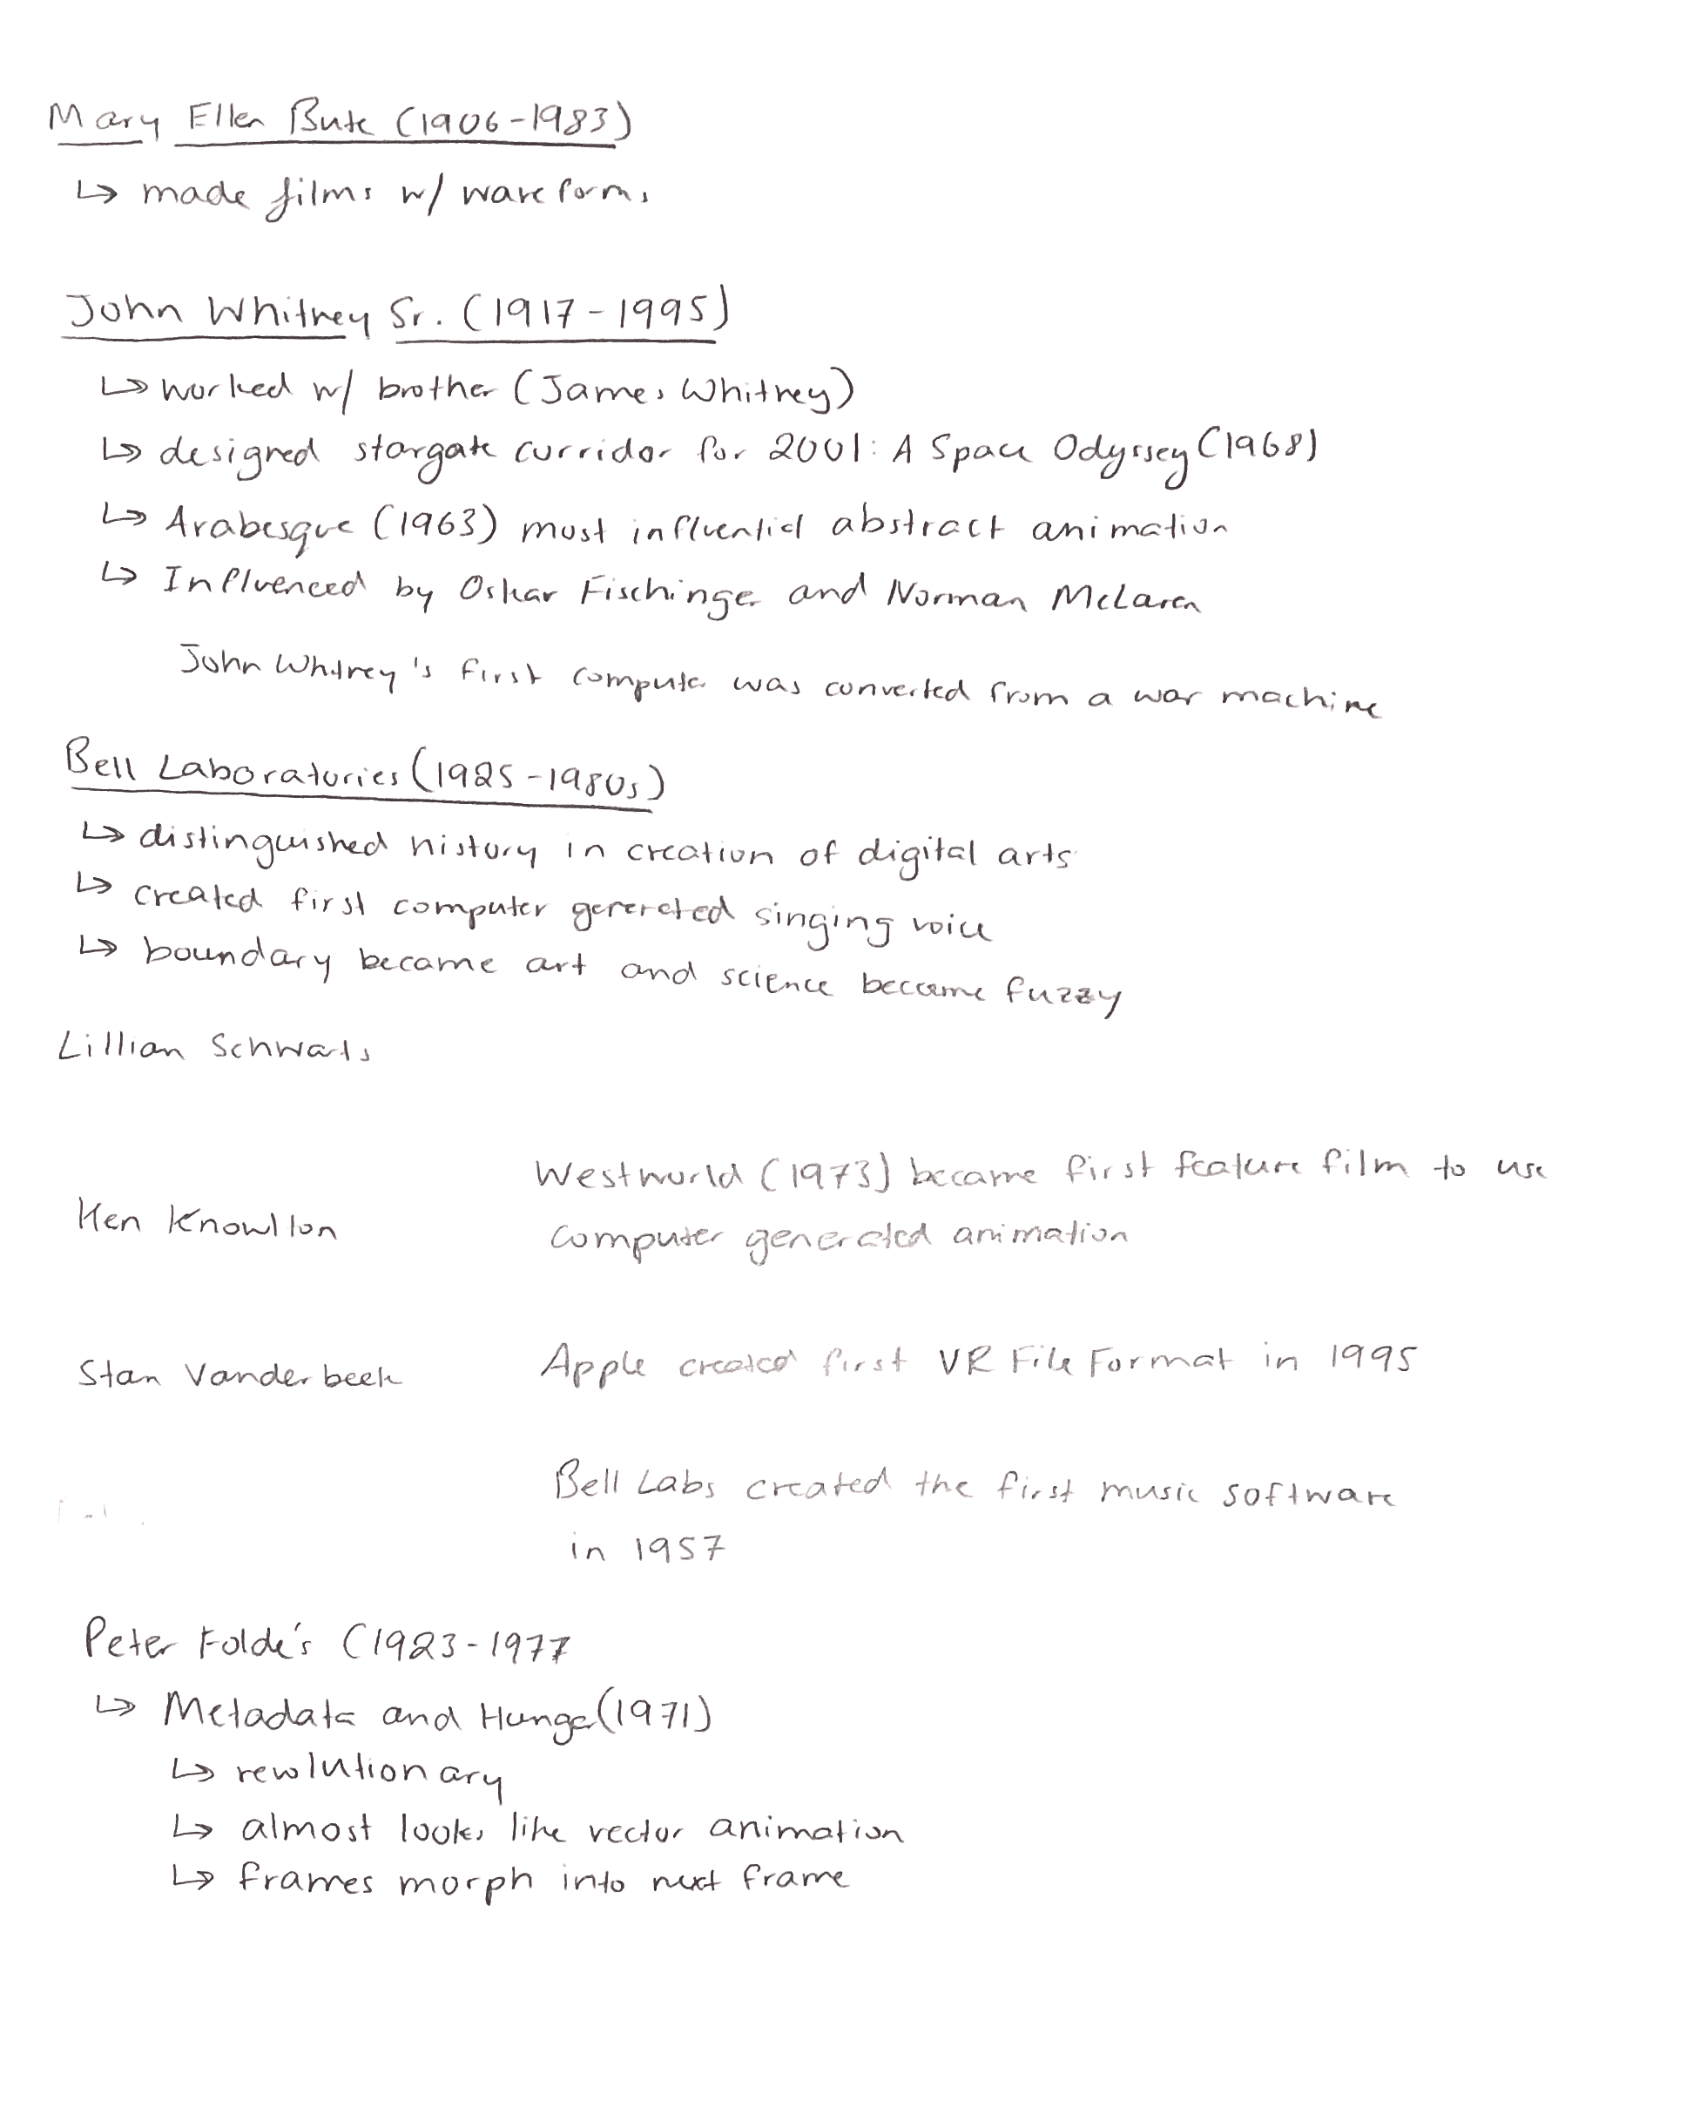 Mary Ellen Bute (1906-1983)
↳ made films w/ waveforms
John Whitney Sr. (1917-1995)
↳ worked w/ brother (James Whitney)
↳ designed stargate corridor for 2001: A Space Odyssey (1968)
↳ Arabesque (1963) most influential abstract animation
↳ Influenced by Oskar Fischinger and Norman McLaren
John Whitney's first computer was converted from a war machine
Bell Laboratories (1925-1980s)
↳ distinguished history in creation of digital arts
↳ created first computer generated singing voice
↳ boundary became art and science became fuzzy
Lillian Schwarts
Westworld (1973) became first feature film to use
computer generated animation
Ken Knowlton
Apple created first VR File Format in 1995
Stan Vanderbeek
Bell Labs created the first music software
in 1957
Peter Folde's (1923-1977
↳ Metadata and Hunger (1971)
↳ revolutionary
↳ almost looks like vector animation
↳ frames morph into next frame